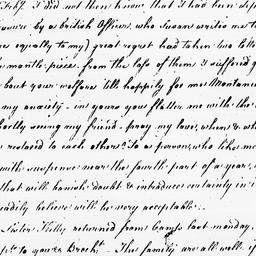 I did not then know that I had been dep
by a british Officer, who Susan writes me t
equally to me) great regret had taken two lette
mantle-piece. from the loss of them I suffered g
bout your welfare till happily for me Montanve
my anxiety - in yours you flatter me with the
hortly seeing my friend - pray my love, when & wh
restored to each other? To a person, who like me
with suspence near the fourth part of a year,
that will banish doubt & introduce certainty in i
eadily believe will be very acceptable.
Sister Kitty returned from Camp last monday.
to you & Broth. - The family are all well. i